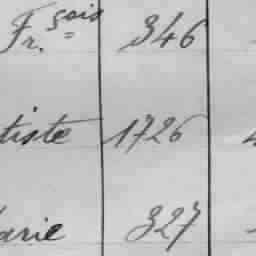 Fr.çois 346
tiste 1726
arie 327